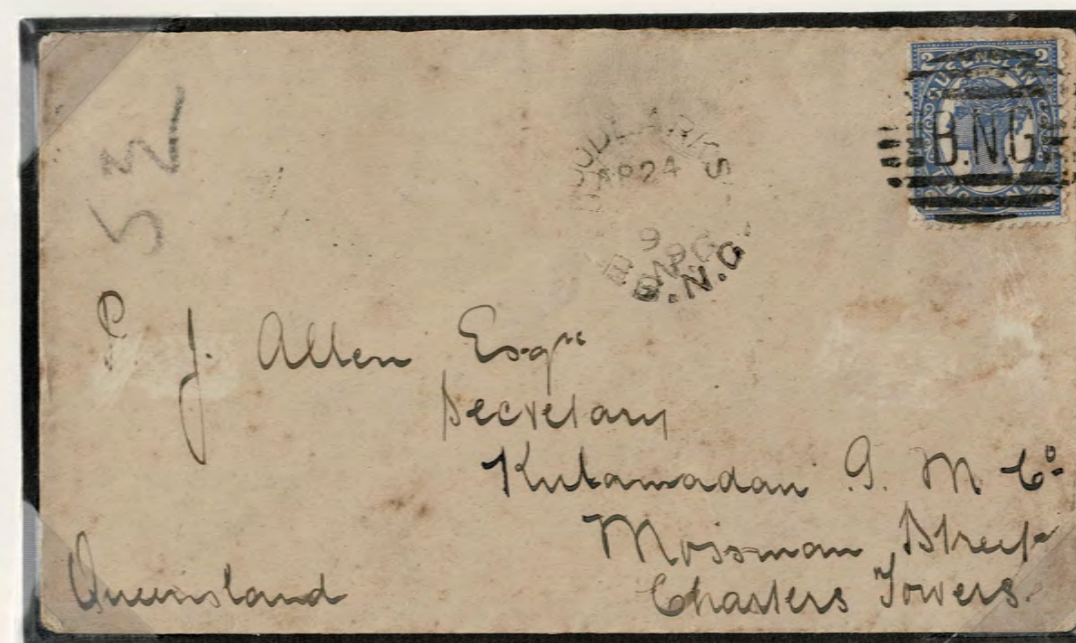 2 QUEENSLAND 2
B.N.G.
WOODLARKS
AP 24
B.N.G.
52
P. J. Allen Esqre
Secretary
Kulamadau G. M Co
Mossman Street
Charters Towers.
Queensland